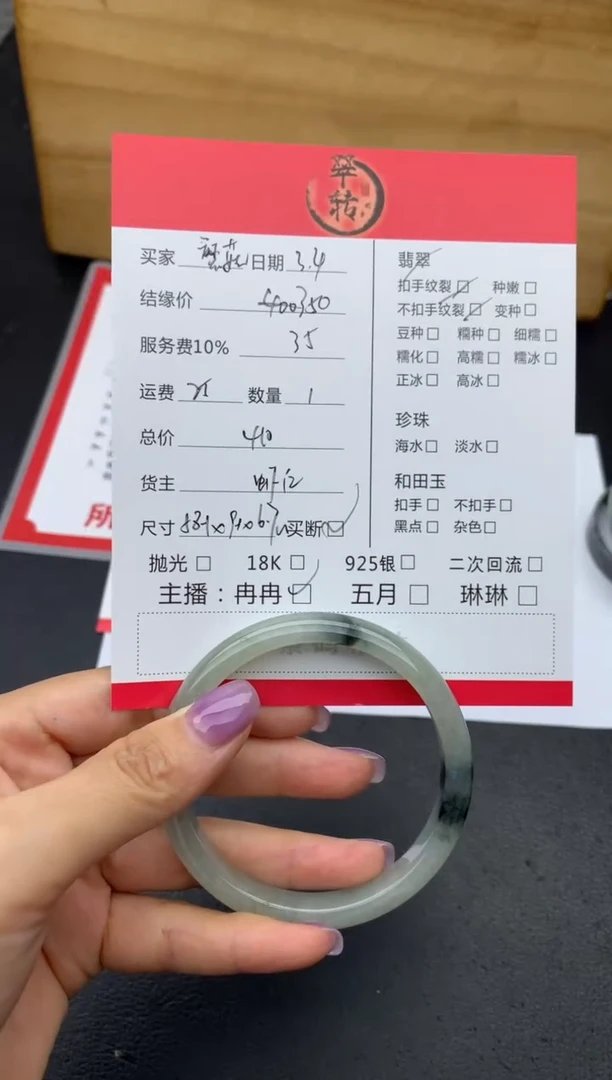 翠
转
买家 日期 3.4
结缘价 350
服务费10% 35
运费 数量 1
总价 410
货主
尺寸 买断☐
翡翠
扣手纹裂☐ 种嫩☐
不扣手纹裂☐ 变种☐
豆种☐ 糯种☐ 细糯☐
糯化☐ 高糯☐ 糯冰☐
正冰☐ 高冰☐
珍珠
海水☐ 淡水☐
和田玉
扣手☐ 不扣手☐
黑点☐ 杂色☐
抛光☐ 18K☐ 925银☐ 二次回流☐
主播：冉冉☐ 五月☐ 琳琳☐
所